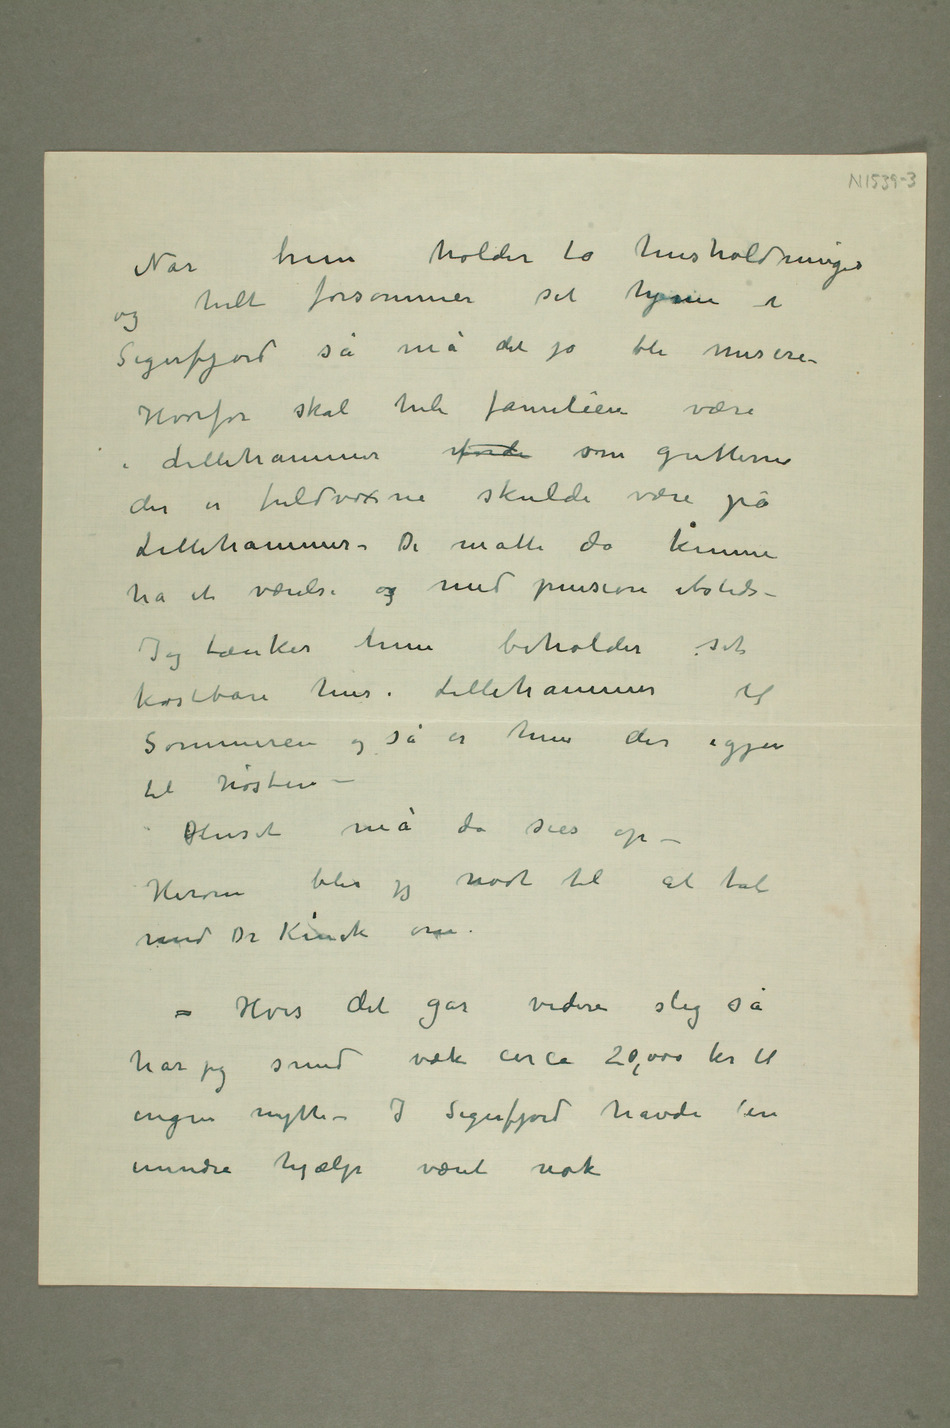 N1539-3
Når hun holder to husholdninger
og helt forsømmer sit hjem i
Sigerfjord så må det jo bli misere –
Hvorfor skal hele familien være
i Lillehammer fordi om gutterne
der er fuldvoxne skulde være på
Lillehammer – De måtte da kunne
ha et værelse og med pension etsteds –
Jeg tænker hun beholder sit
kostbare hus i Lillehammer til
Sommeren og så er hun der igjen
til høsten –
Huset må da sies op –
Herom blir jeg nødt til at tale
med Dr Kinck om.
– Hvis det går videre slig så
har jeg smid væk circa 20,000 kr til
ingen nytte – I Sigerfjord havde en
mindre hjælp været nok